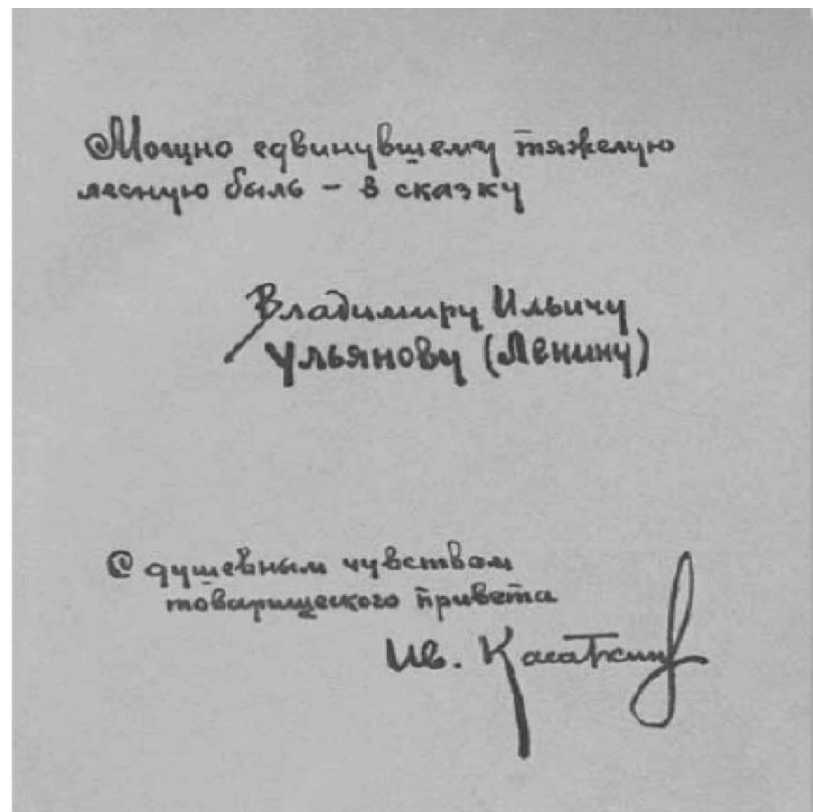 Мощно сдвинувшему тяжелую
лесную быль – в сказку
Владимиру Ильичу
Ульянову (Ленину)
С душевным чувством
товарищеского привета
Ив. Касаткин